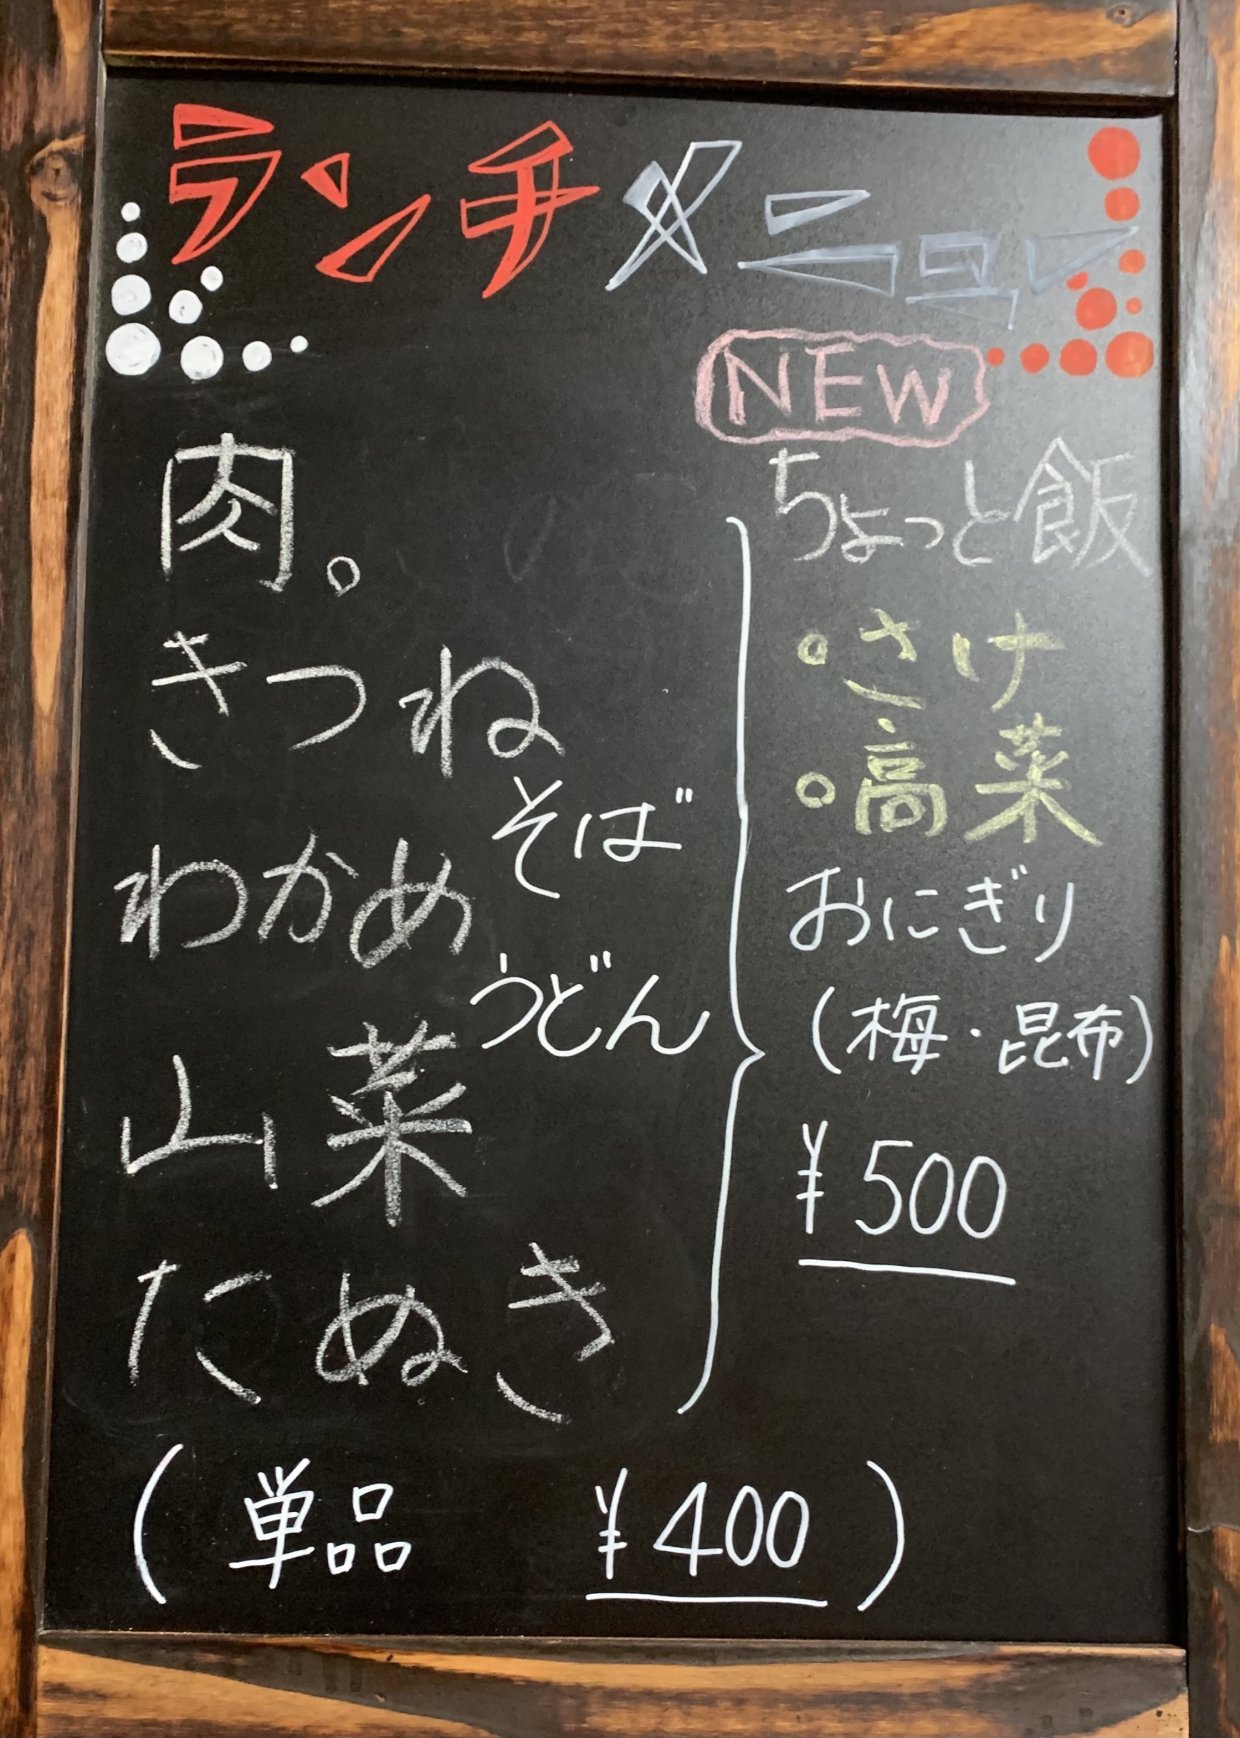 ランチメニュー
肉。
きつね
わかめ
山菜
たぬき
そば
うどん
NEW
ちょっと飯
・さけ
・高菜
おにぎり
(梅・昆布)
¥500
(単品 ¥400)